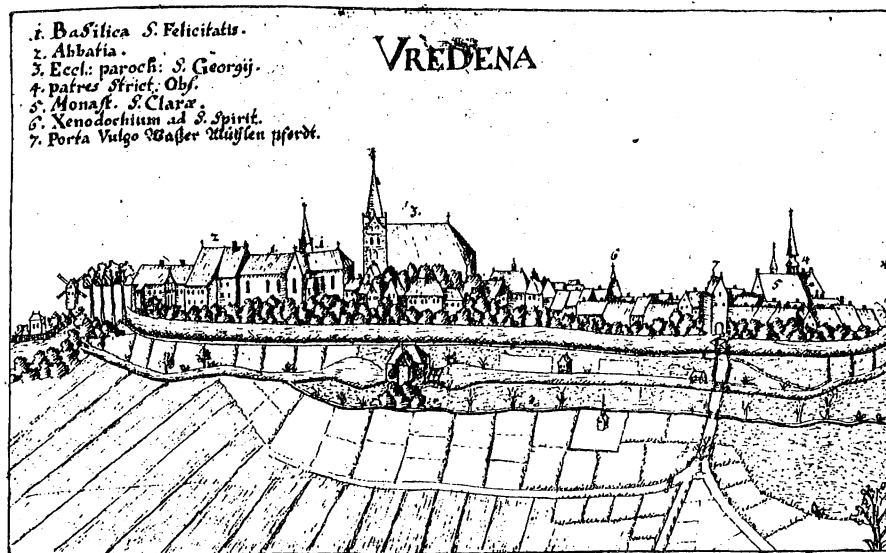 1. Basilica S. Felicitatis.
2. Abbatia.
3. Eccl: paroch: S. Georgij.
4. patres Strict: Obs.
5. Monast. S. Claræ.
6. Xenodochium ad S. Spirit.
7. Porta Vulgo Waßer Mühlen pfordt.
VREDENA
2
1
3.
6
7
5
4